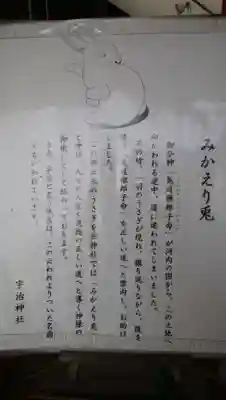 みかえり兎
御分神「菟道稚郎子命」が河内の国から、この土地へ
向かわれる途中、道に迷われてしまいました。
その時、一羽のうさぎが現れ、振り返りながら、後を
追う「菟道稚郎子命」を正しい道へと案内し、お助け
しました。
この振り返ったうさぎを当神社では「みかえり兎
」と呼び、人々の人生を道徳の正しい道へと導く神様の
御使いとして伝わっております。
また、宇治と言う地名は、この云われよりついた名前
ともいわれています。
宇治神社